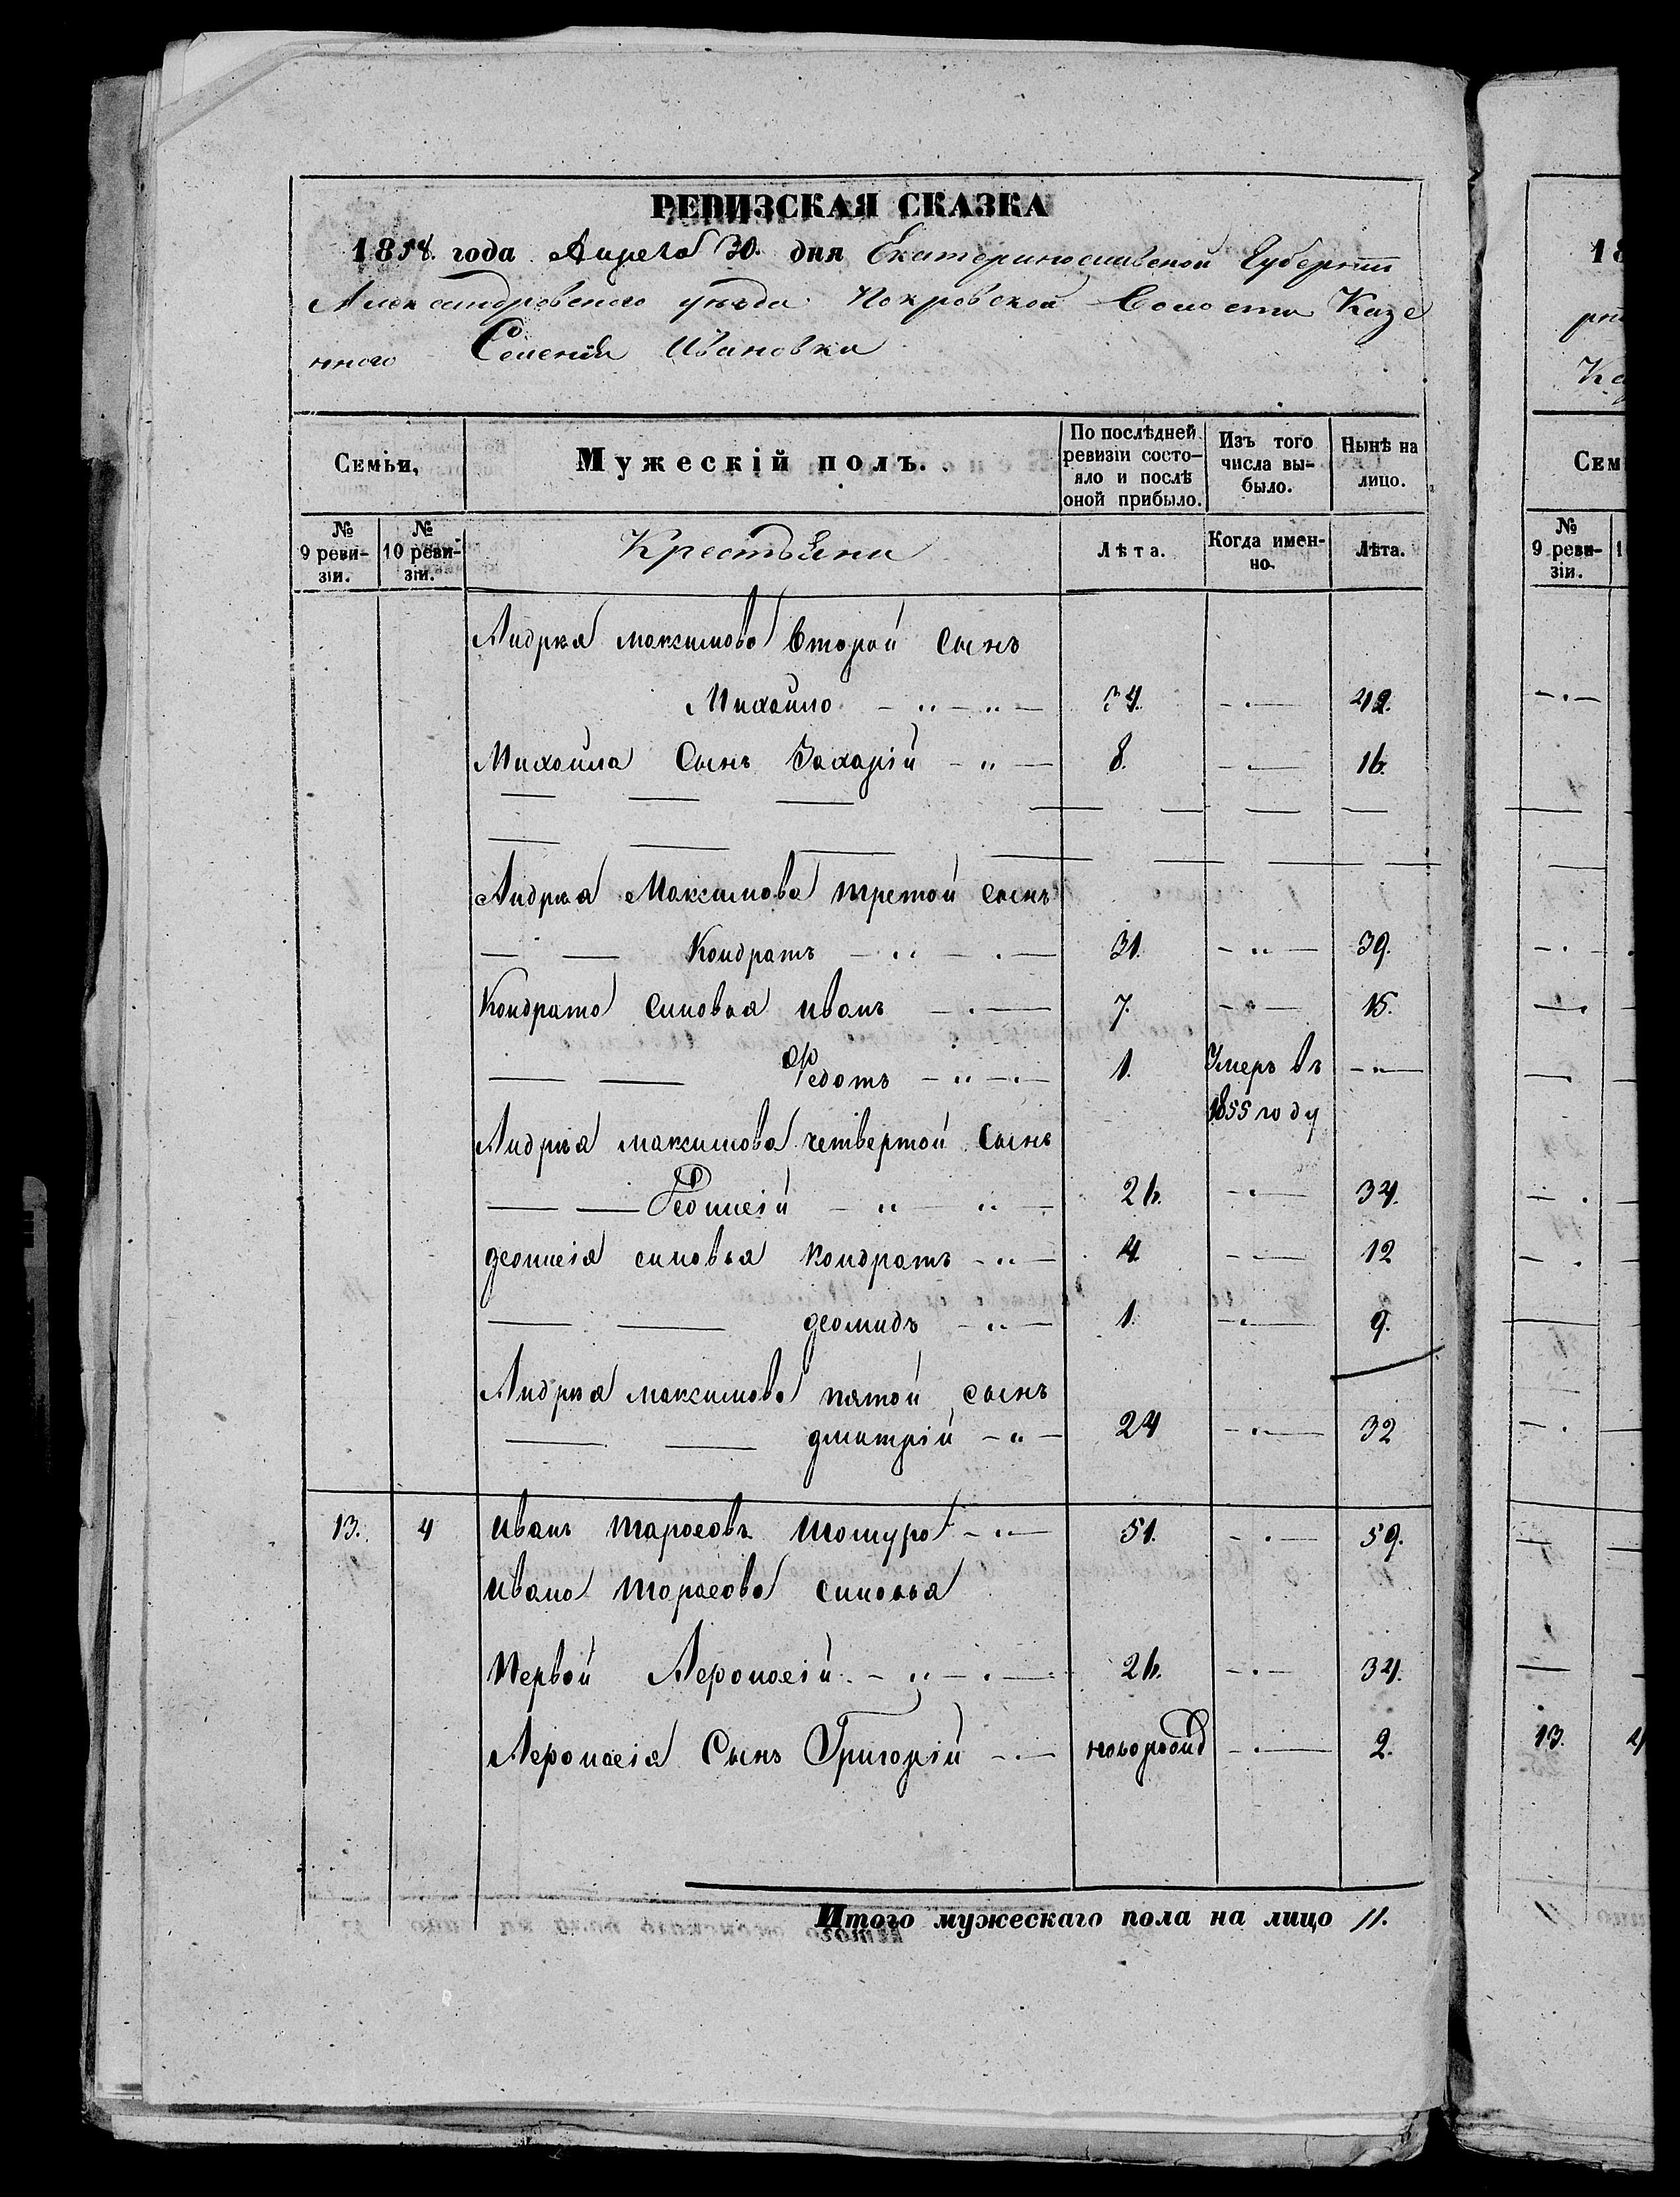 РЕВИЗСКАЯ СКАЗКА
1858. года Апреля 30. дня Екатеринославской Губернии
Александровского уезда Покровской Волости Казе
нного Селения Ивановки
Семьи,
Мужескій полъ.
По послѣдней ревизіи состо-яло и послѣ оной прибыло.
Изъ того числа вы-было.
Нынѣ на лицо.
№ 9 реви-зіи.
№ 10 реви-зіи.
Крестьяни
Лѣта.
Когда имен-но.
Лѣта.
Андрея Максимова второй Сынъ
Михайло 34. 42.
Михайла Сынъ Захарій 8. 16.
Андрея Максимова третой сынъ
Кондратъ 31. 39.
Кондрата синовья иванъ 7. 15.
Федотъ 1. Умеръ въ
1855 году
Андрея максимова четвертой Сынъ
26. 34.
синовья кондратъ 4 12
деомидъ 1. 9.
Андрея максимова пятой сынъ
дмитрій 24 32
13. 4 иванъ тарасовъ 51. 59.
ивана тарасова синовья
Первой 26. 34.
Сынъ Григорій 2.
Итого мужескаго пола на лицо 11.
18
Сем
№ 9 реви-зіи.
13.